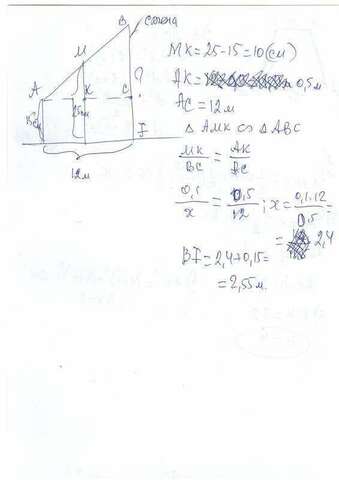 B
стена
M
A
K
C
?
15см
25см
I
12м
MK = 25-15 = 10 (см)
AK = 0,5м
AC = 12м
△ AMK ∽ △ ABC
MK/BC = AK/AC
0,1/x = 0,5/12 ; x = 0,1·12/0,5 =
= 2,4
BI = 2,4+0,15=
= 2,55м.